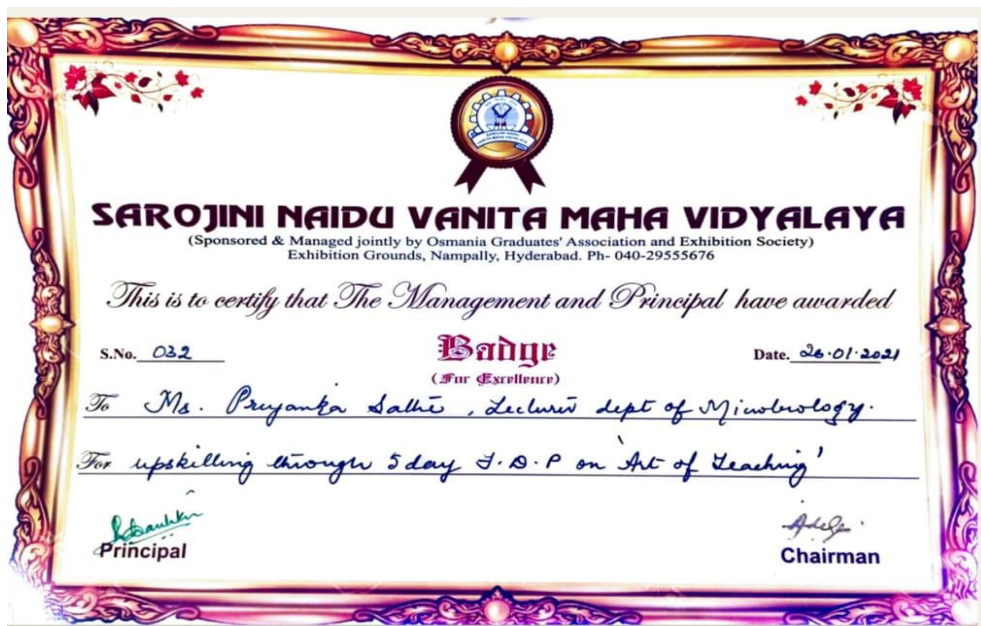 SAROJINI NAIDU VANITA MAHA VIDYALAYA
(Sponsored & Managed jointly by Osmania Graduates' Association and Exhibition Society)
Exhibition Grounds, Nampally, Hyderabad. Ph- 040-29555676
This is to certify that The Management and Principal have awarded
S.No. 032 Badge Date. 26·01·2021
(For Excellence)
To Ms. Priyanka Sathe, Lecturer dept of Microbiology.
For upskilling through 5 day F.D.P on 'Art of Teaching'
Principal Chairman